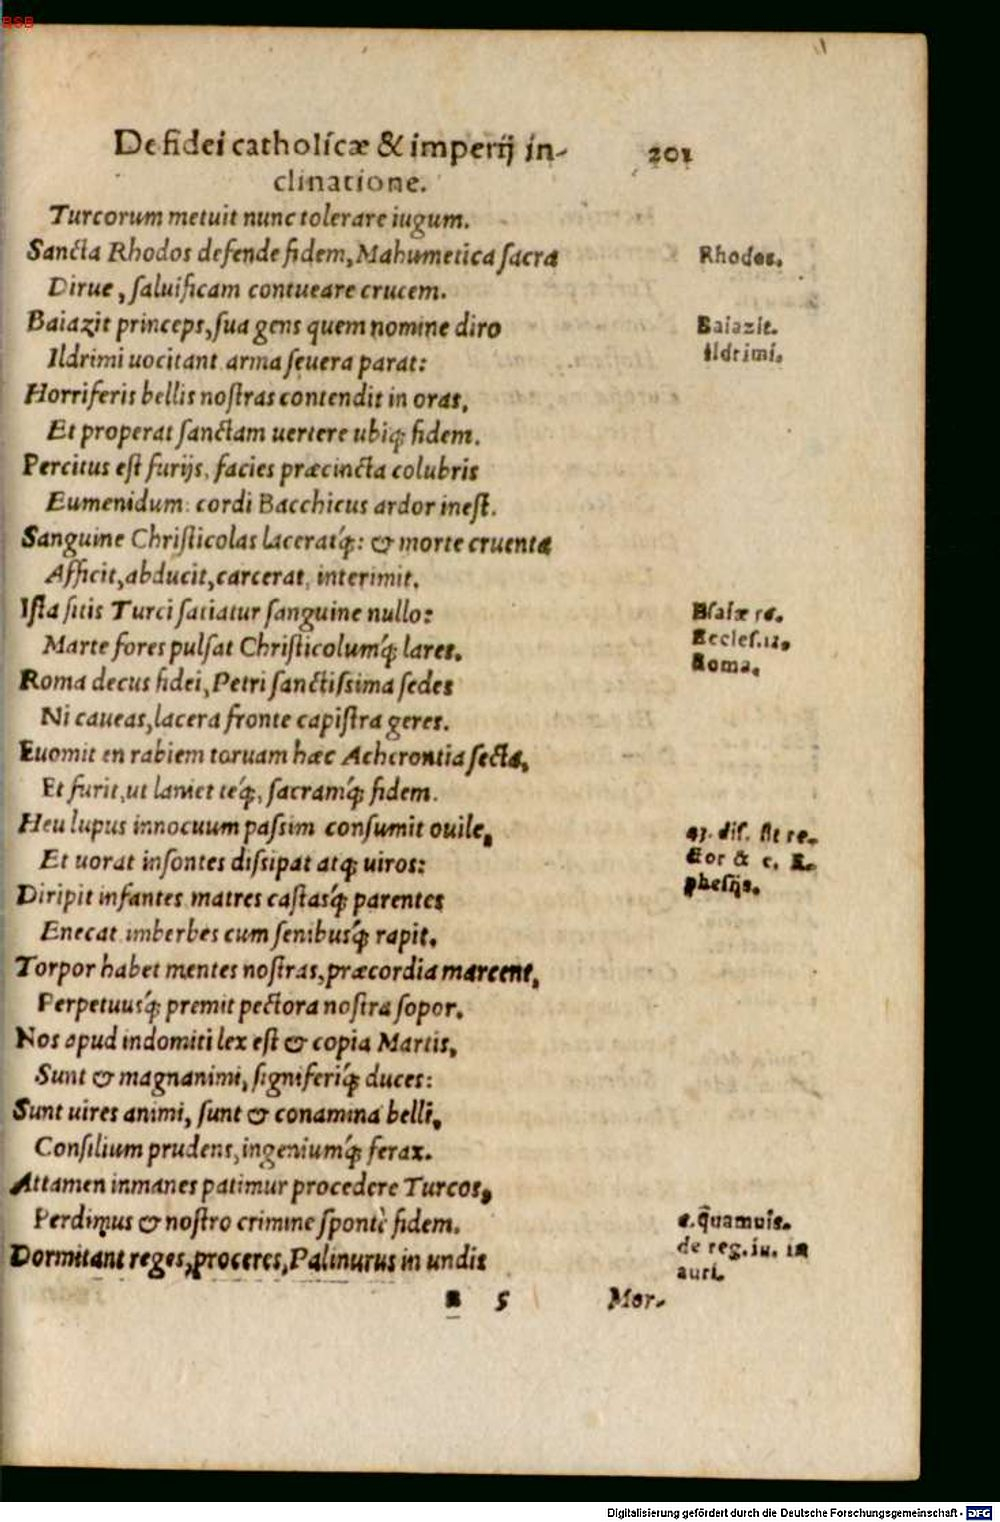 BSB
De fidei catholicæ & imperij in- 201
clinatione.
Turcorum metuit nunc tolerare iugum.
Sancta Rhodos defende fidem, Mahumetica sacra Rhodos.
Dirue, saluificam contueare crucem.
Baiazit princeps, sua gens quem nomine diro Baiazit.
Ildrimi uocitant arma seuera parat: Ildrimi.
Horriferis bellis nostras contendit in oras,
Et properat sanctam uertere ubiq; fidem.
Percitus est furijs, facies præcincta colubris
Eumenidum: cordi Bacchicus ardor inest.
Sanguine Christicolas laceratq́;: & morte cruenta
Afficit, abducit, carcerat, interimit.
Ista sitis Turci satiatur sanguine nullo: Esaiæ 56.
Marte fores pulsat Christicolumq́; lares. Eccles.12.
Roma decus fidei, Petri sanctissima sedes Roma.
Ni caueas, lacera fronte capistra geres.
Euomit en rabiem toruam hæc Acherontia secta,
Et furit, ut laniet teq́;, sacramq́; fidem.
Heu lupus innocuum passim consumit ouile, 43. dis. sit re-
Et uorat insontes dissipat atq; uiros: ctor & c. E-
Diripit infantes matres castasq́; parentes phesijs.
Enecat imberbes cum senibusq́; rapit.
Torpor habet mentes nostras, præcordia marcent,
Perpetuusq́; premit pectora nostra sopor.
Nos apud indomiti lex est & copia Martis,
Sunt & magnanimi, signiferiq́; duces:
Sunt uires animi, sunt & conamina belli,
Consilium prudens, ingeniumq́; ferax.
Attamen inmanes patimur procedere Turcos,
Perdimus & nostro crimine spontè fidem. c. q̃uamuis.
Dormitant reges, proceres, Palinurus in undis de reg. iu. in
auri.
n 5 Mer-
Digitalisierung gefördert durch die Deutsche Forschungsgemeinschaft - DFG